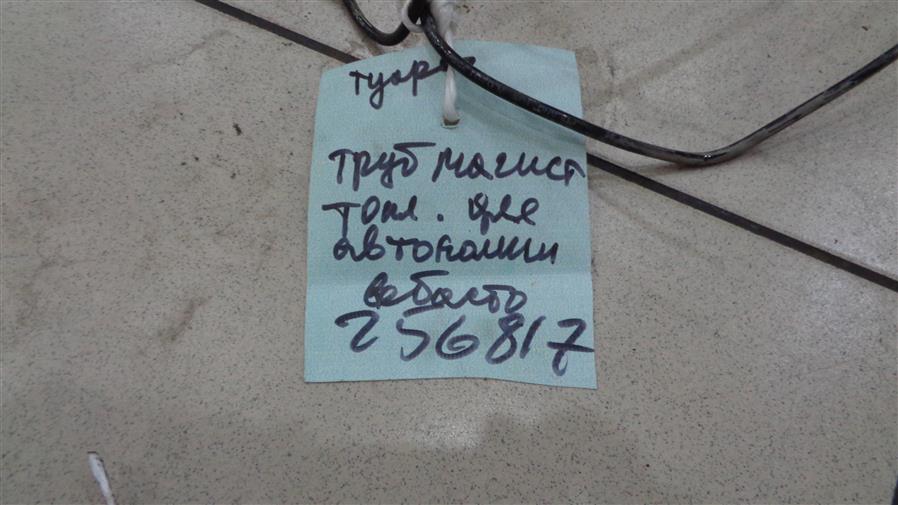 туарег
труб магист
топл. для
автономки
вебасто
256817